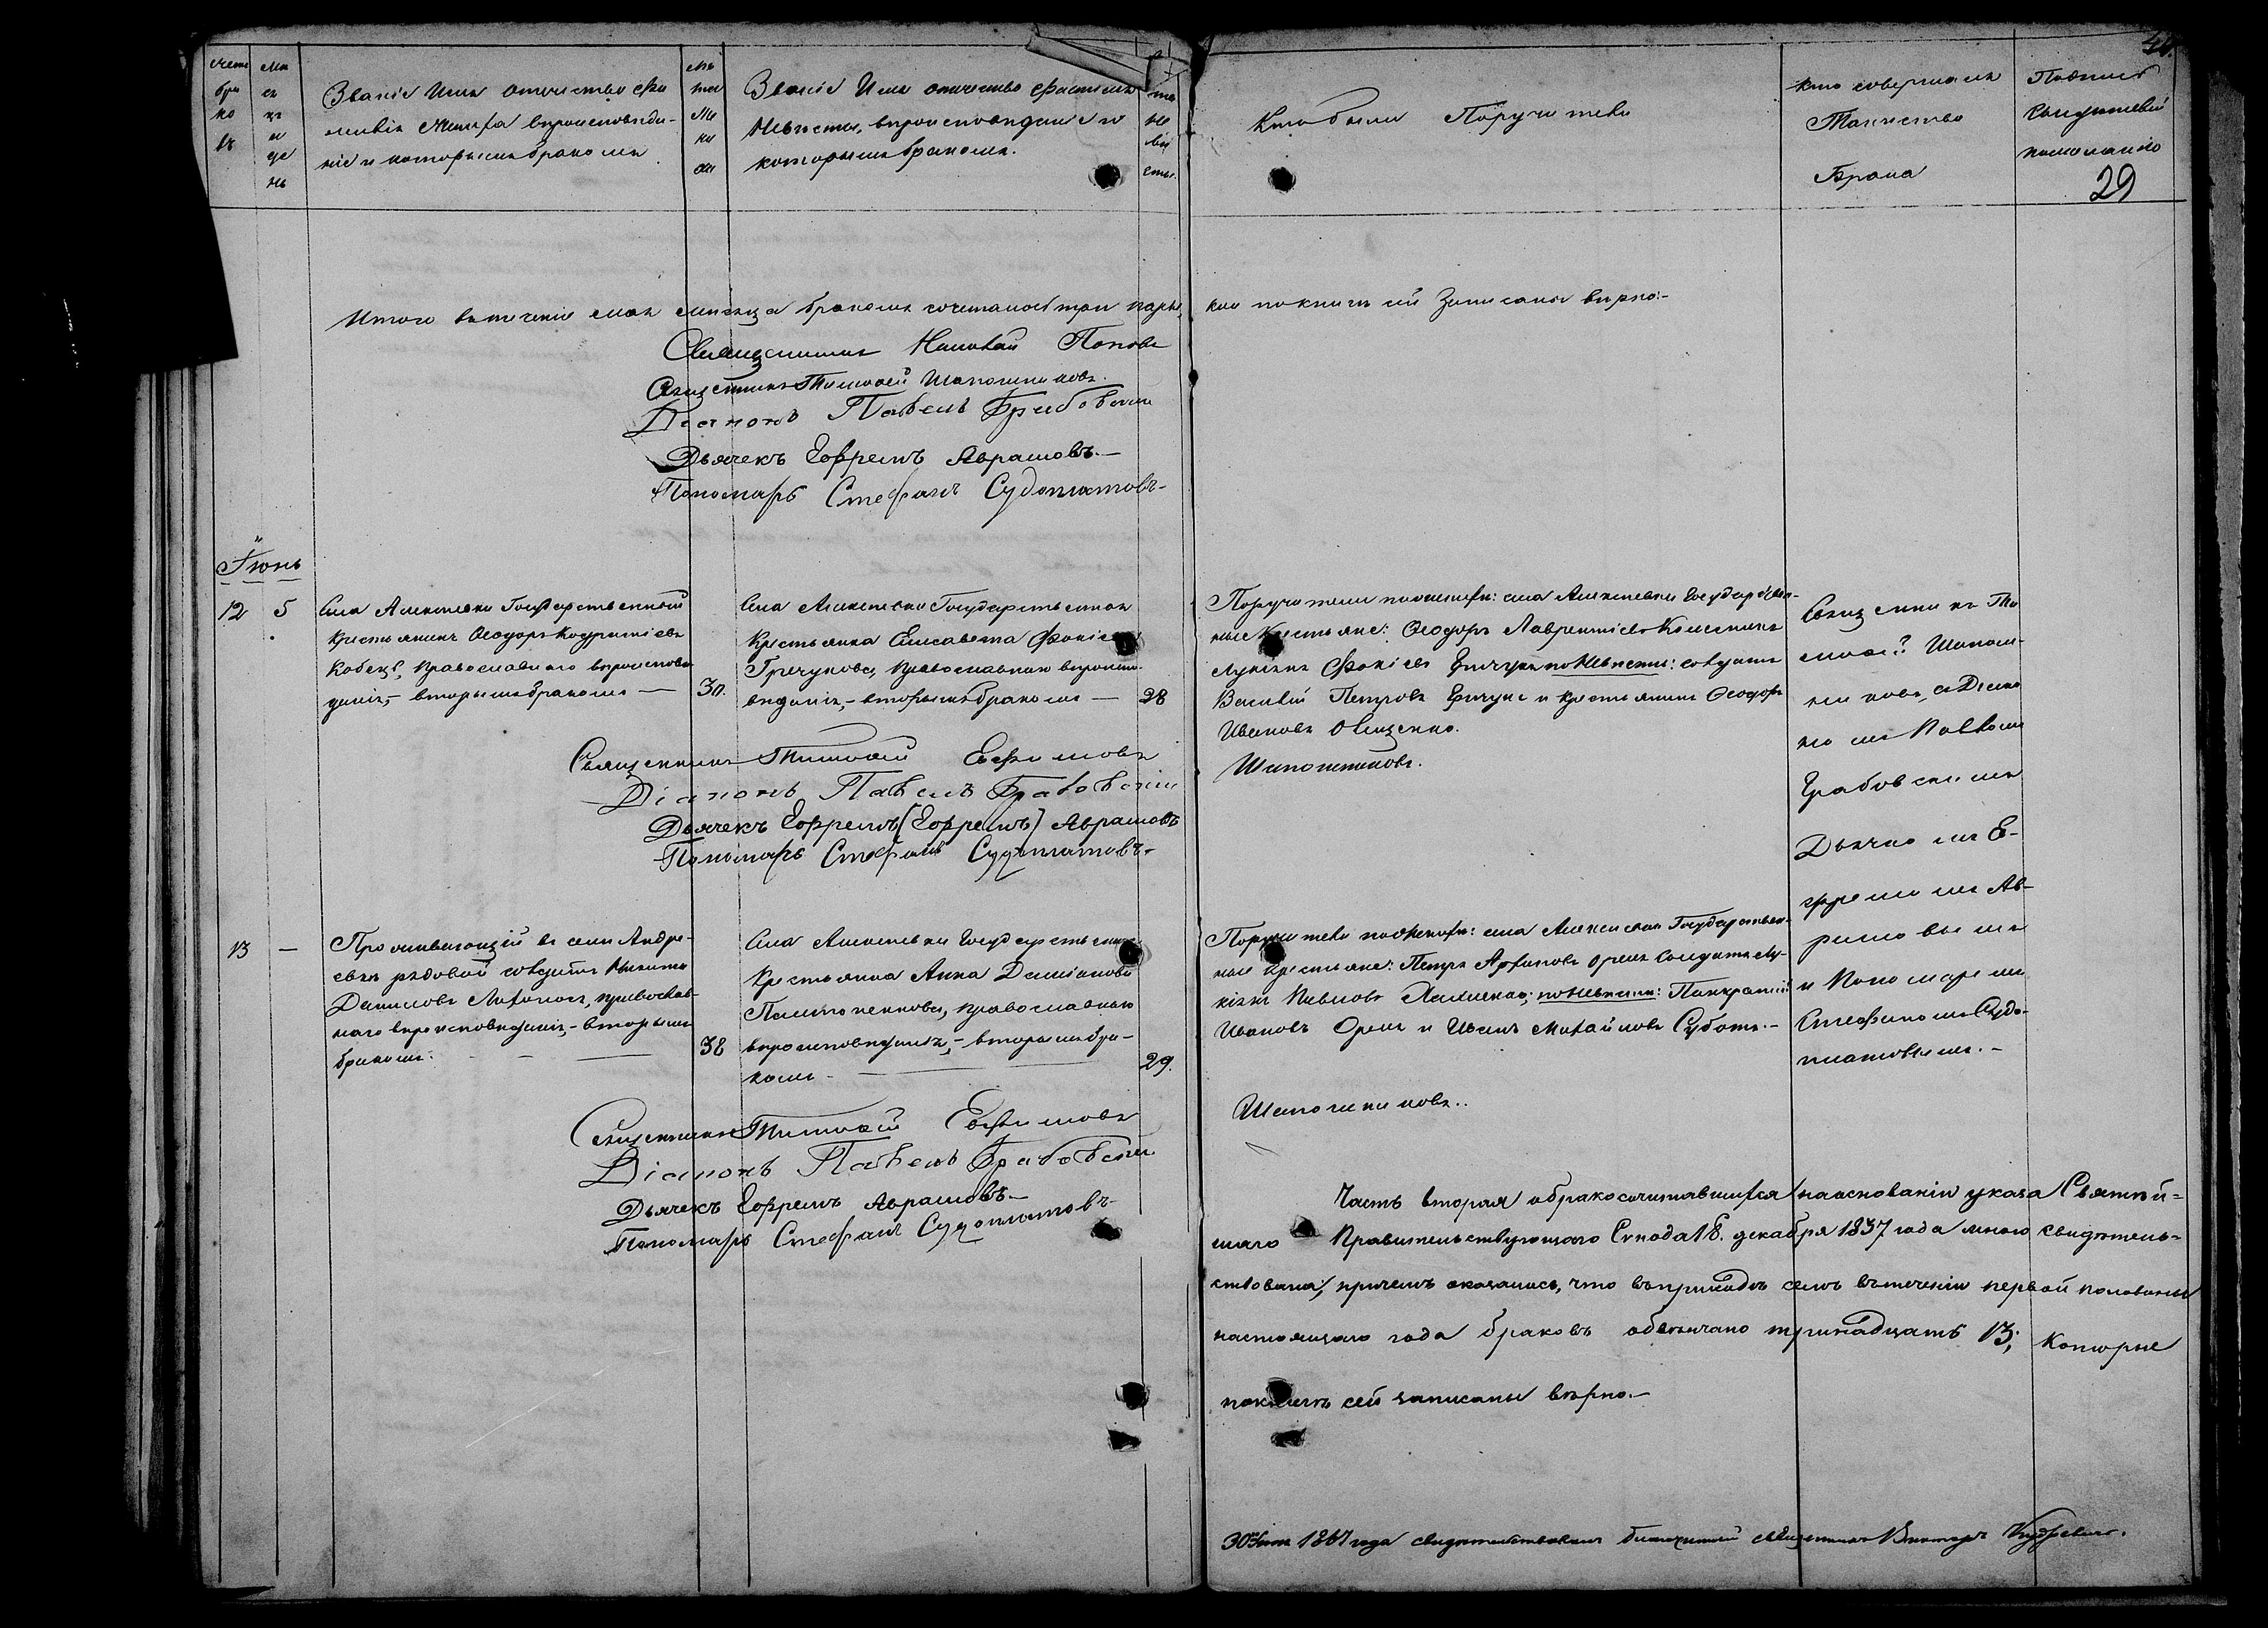 Счетъ браковъ
Мѣсяцъ и день
Званіе Имя отечество фа
милія Жениха вѣроисповѣда-
ніе и которымъ бракомъ
лѣта жениха
Званіе Имя отечество фамилія
Невѣсты, вѣроисповѣданіе и
которымъ бракомъ.
лѣта невѣсты.
Кто были Поручители
кто совершалъ
Таинство
Брака
Подписъ
свидѣтелей
по желанію
29
Итого въ теченіе мая мѣсяца бракомъ сочеталось три пары,
кои по книгѣ сей записаны вѣрно:-
Священникъ Николай Поповъ
Священникъ Тимоѳей Шапошниковъ.
Діаконъ Павелъ Грабовскій
Дьячекъ Ефремъ Аврамовъ.—
Пономарь Стефанъ Судоплатовъ-
Іюнь
12 5
Села Алексѣевки Государственный
крестьянинъ Ѳеодоръ Кодратіевъ
Кобецъ, православнаго вѣроисповѣ
данія,- вторымъ бракомъ —
30.
Села Алексѣевки Государственная
крестьянка Елисавета Фокіева
Гречукова, православнаго вѣроиспо-
вѣданія,- вторымъ бракомъ —
28
Поручители по женихѣ: села Алексѣевки Государствен-
ные крестьяне: Ѳеодоръ Лаврентіевъ
Лукіянъ Фокіевъ по невѣстѣ: солдатъ
Василій Петровъ и крестьянинъ Ѳеодоръ
Ивановъ Онищенко.
Шапошниковъ.
Священникъ Ти
моѳей Шапош-
никовъ съ Діако
номъ Павломъ
Грабовскимъ
Дьячкомъ Е-
фремомъ Ав-
рамовымъ
и Пономаремъ
Стефаномъ Судо-
платовымъ.-
Священникъ Тимоѳей Ефимовъ
Діаконъ Павелъ Грабовскій
Дьячекъ Ефремъ [Ефремъ] Аврамовъ
Пономарь Стефанъ Судоплатовъ-
13 —
Проживающій въ селѣ Андре-
евкѣ рядовой солдатъ Никита
Даниловъ православ-
наго вѣроисповѣданія,- вторымъ
бракомъ.
38
Села Алексѣевки Государственная
крестьянка Анна Даміанова
православнаго
вѣроисповѣданія,- вторымъ бра-
комъ
29.
Поручители по женихѣ: села Алексѣевки Государствен-
ные крестьяне: Петръ Орелъ солдатъ Лу-
кіянъ Павловъ по невѣстѣ: Панкратій
Ивановъ Орелъ и Иванъ Михайловъ Субота.-
Шапошниковъ..
Священникъ Тимоѳей Ефимовъ
Діаконъ Павелъ Грабовскій
Дьячекъ Ефремъ Аврамовъ-
Пономарь Стефанъ Судоплатовъ-
Часть вторая о бракосочитавшихся на основаніи указа Святѣй=
шаго Правительствующаго Сѵнода 18. декабря 1837 года мною свидѣтель=
ствована, причемъ оказалось, что въ приходѣ семъ въ теченіи первой половины
настоящаго года браковъ обвѣнчано тринадцать 13; которые
по книгѣ сей записаны вѣрно.—
30 1867 года свидѣтельствовалъ благочинный священникъ Викторъ